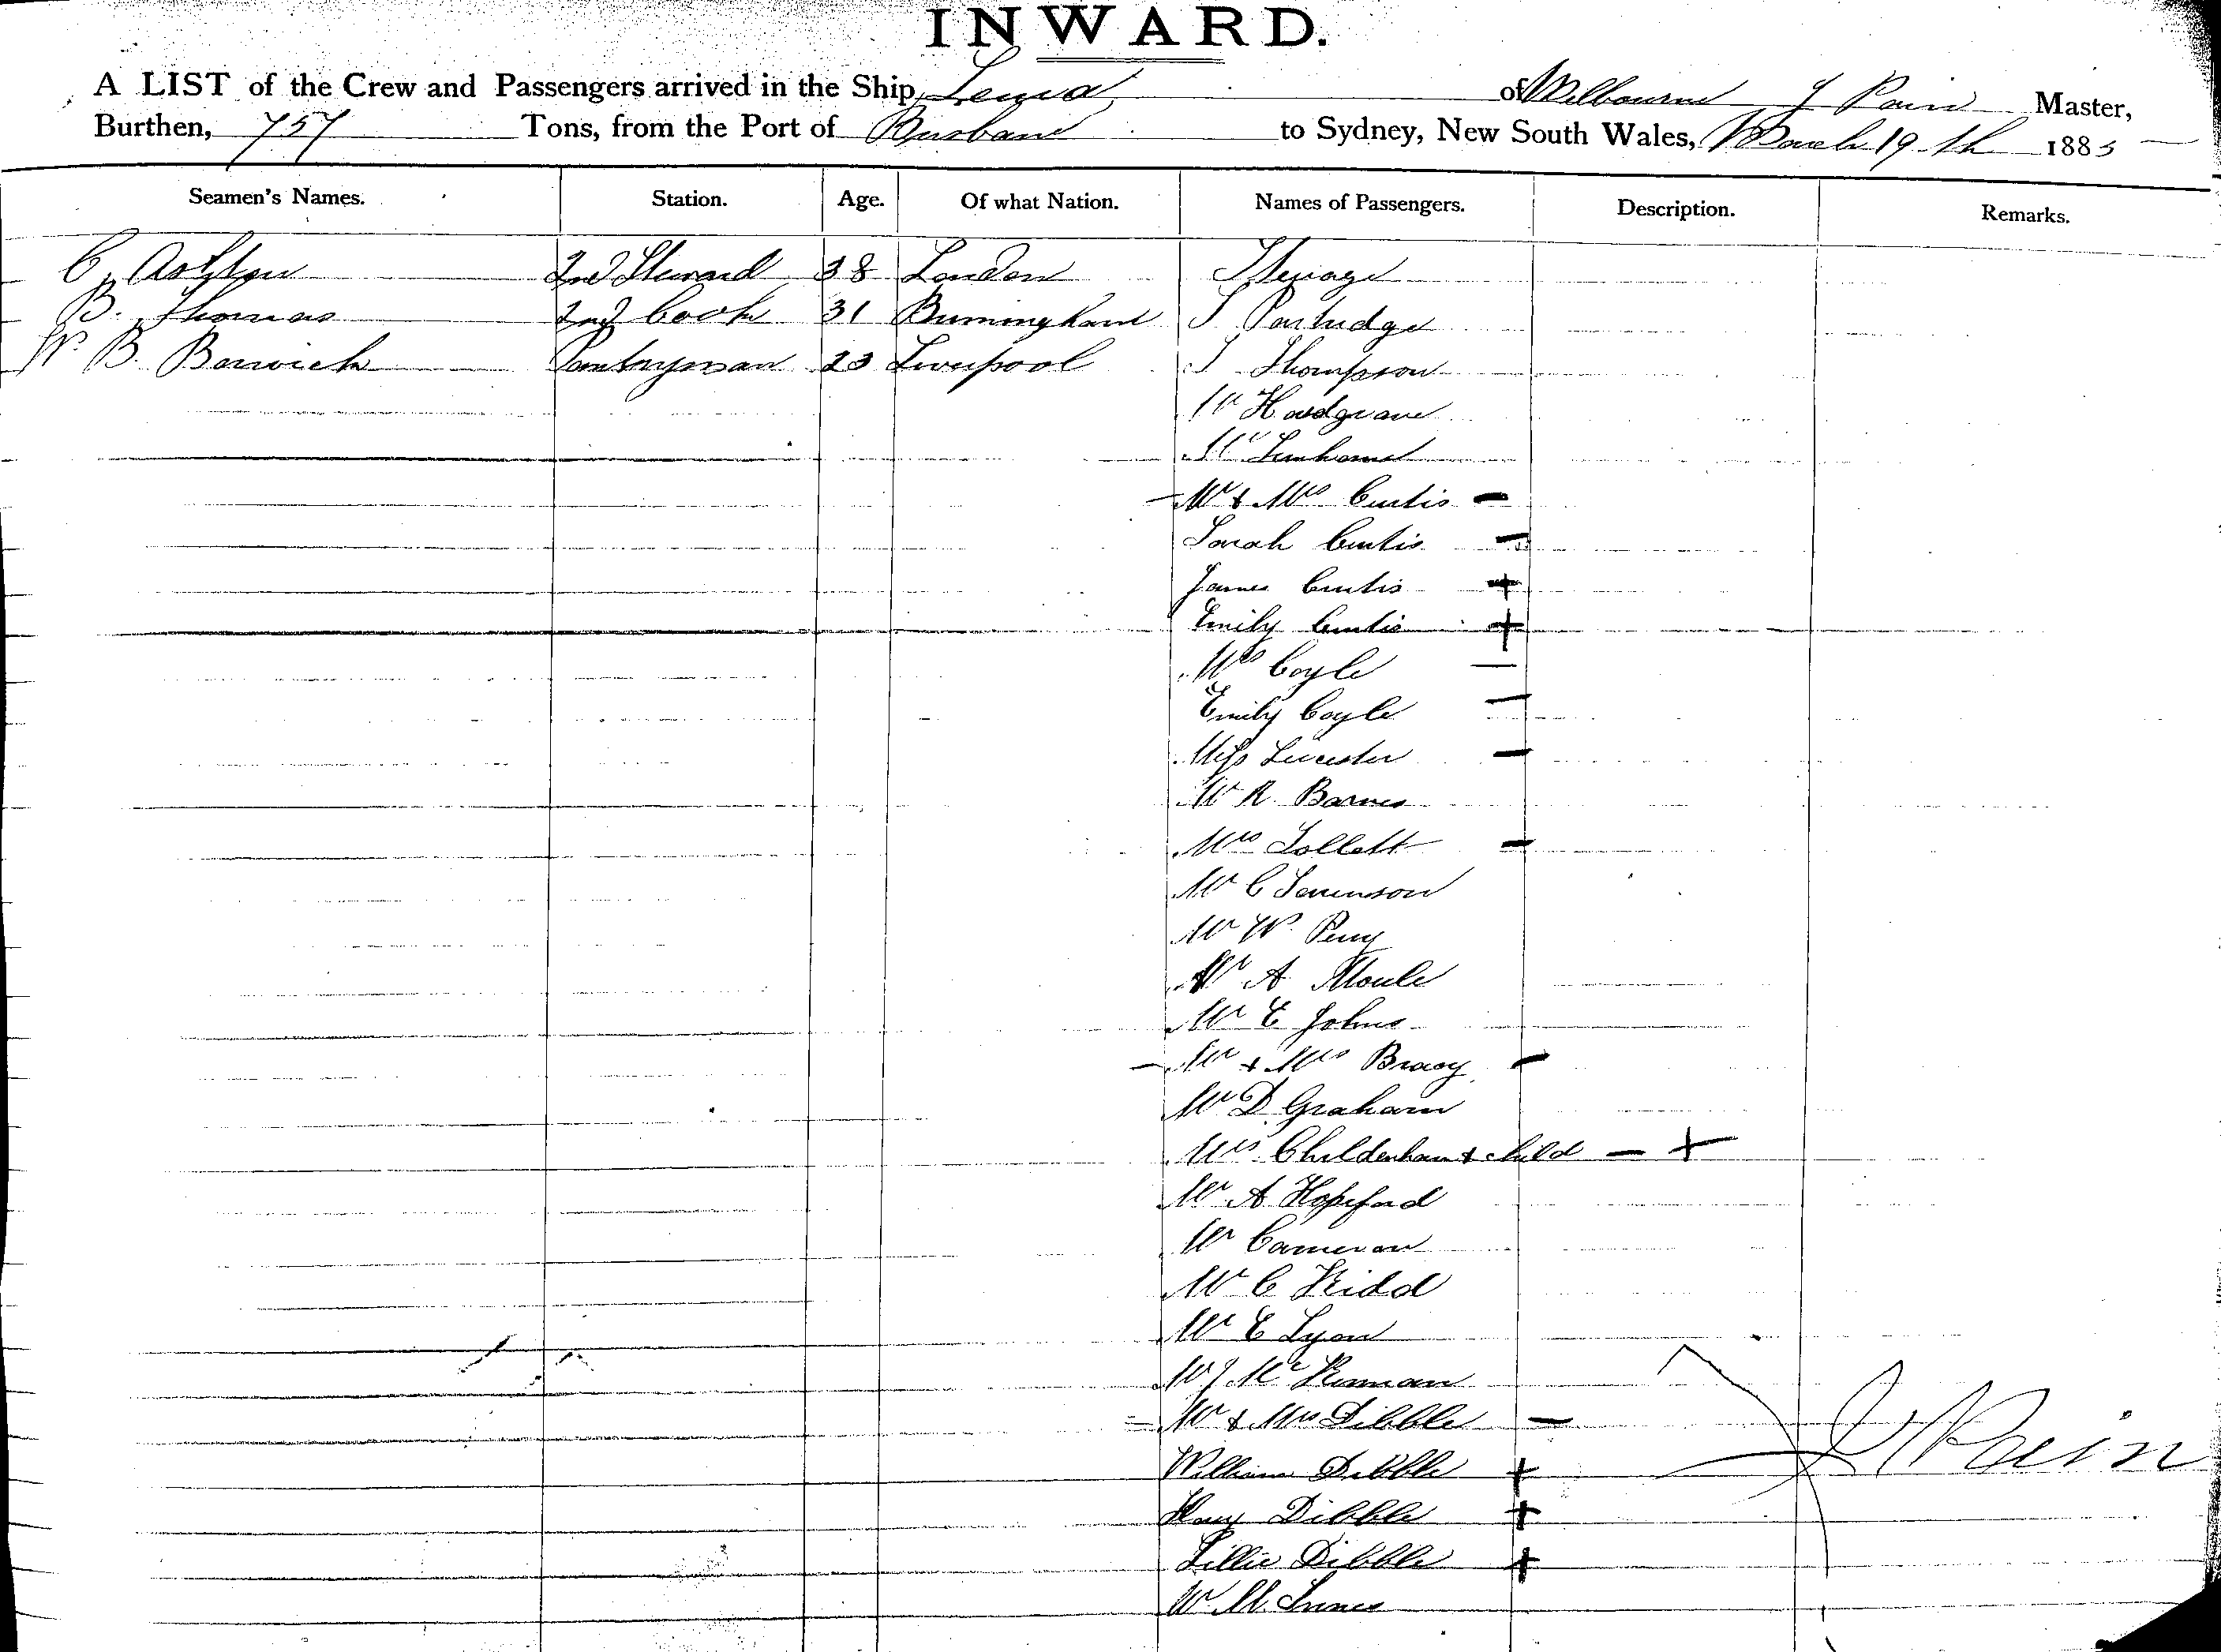 INWARD.
A LIST of the Crew and Passengers arrived in the Ship of Melbourne J Pain Master,
Burthen, 757 Tons, from the Port of Brisbane to Sydney, New South Wales, March 19th 1883
Seamen's Names. Station. Age. Of what Nation. Names of Passengers. Description. Remarks.
C. 2nd Steward 38 London Steerage
B. Thomas 2nd Cook 31 Birmingham J Partridge
W. B. Barwick Pantryman 23 Liverpool J Thompson
Mr Hardgrave
Mr
Mr & Mrs Curtis
Sarah Curtis
James Curtis
Emily Curtis
Mrs Coyle
Emily Coyle
Miss
Mr R. Barnes
Mrs Tollett
Mr C Sorenson
Mr W. Perry
Mr A Moule
Mr E Johns
Mr & Mrs Bracy
Mr D Graham
Mrs Childenham & child
Mr A Hopeford
Mr Cameron
Mr C Kidd
Mr E Lyon
Mr J Mc
Mr & Mrs Dibble
J Pain
William Dibble
Dibble
Lillie Dibble
W. M. Innes